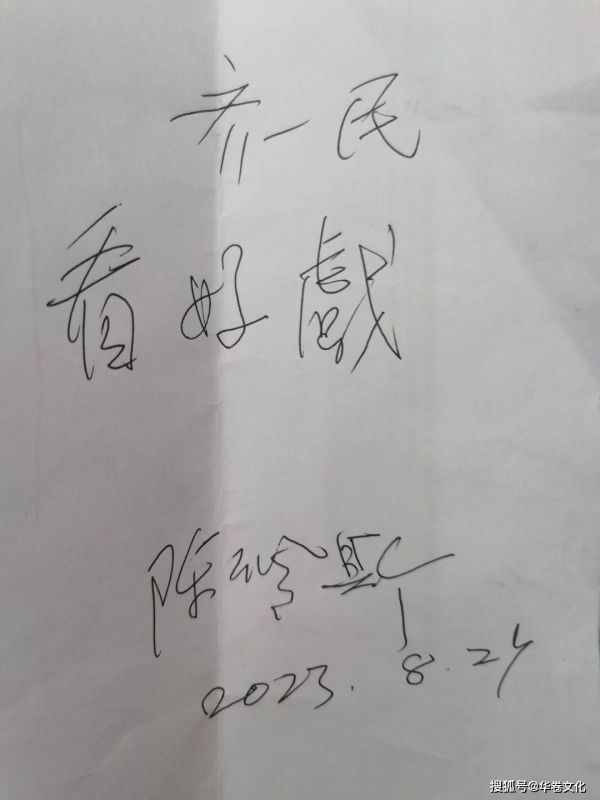 齐一民
看好戲
陈
2023. 8.24
搜狐号@华卷文化